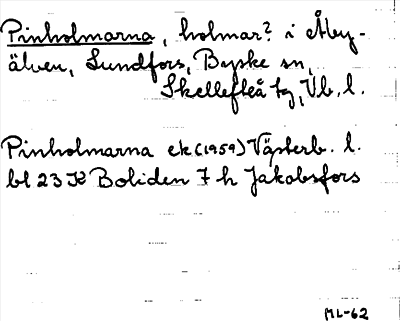 Pinholmarna, holmar? i Åby-
älven, Sundfors, Byske sn,
Skellefteå tg, Vb. l.
Pinholmarna ek (1959) Västerb. l.
bl 23 K Boliden 7 h Jakobsfors
ML-62